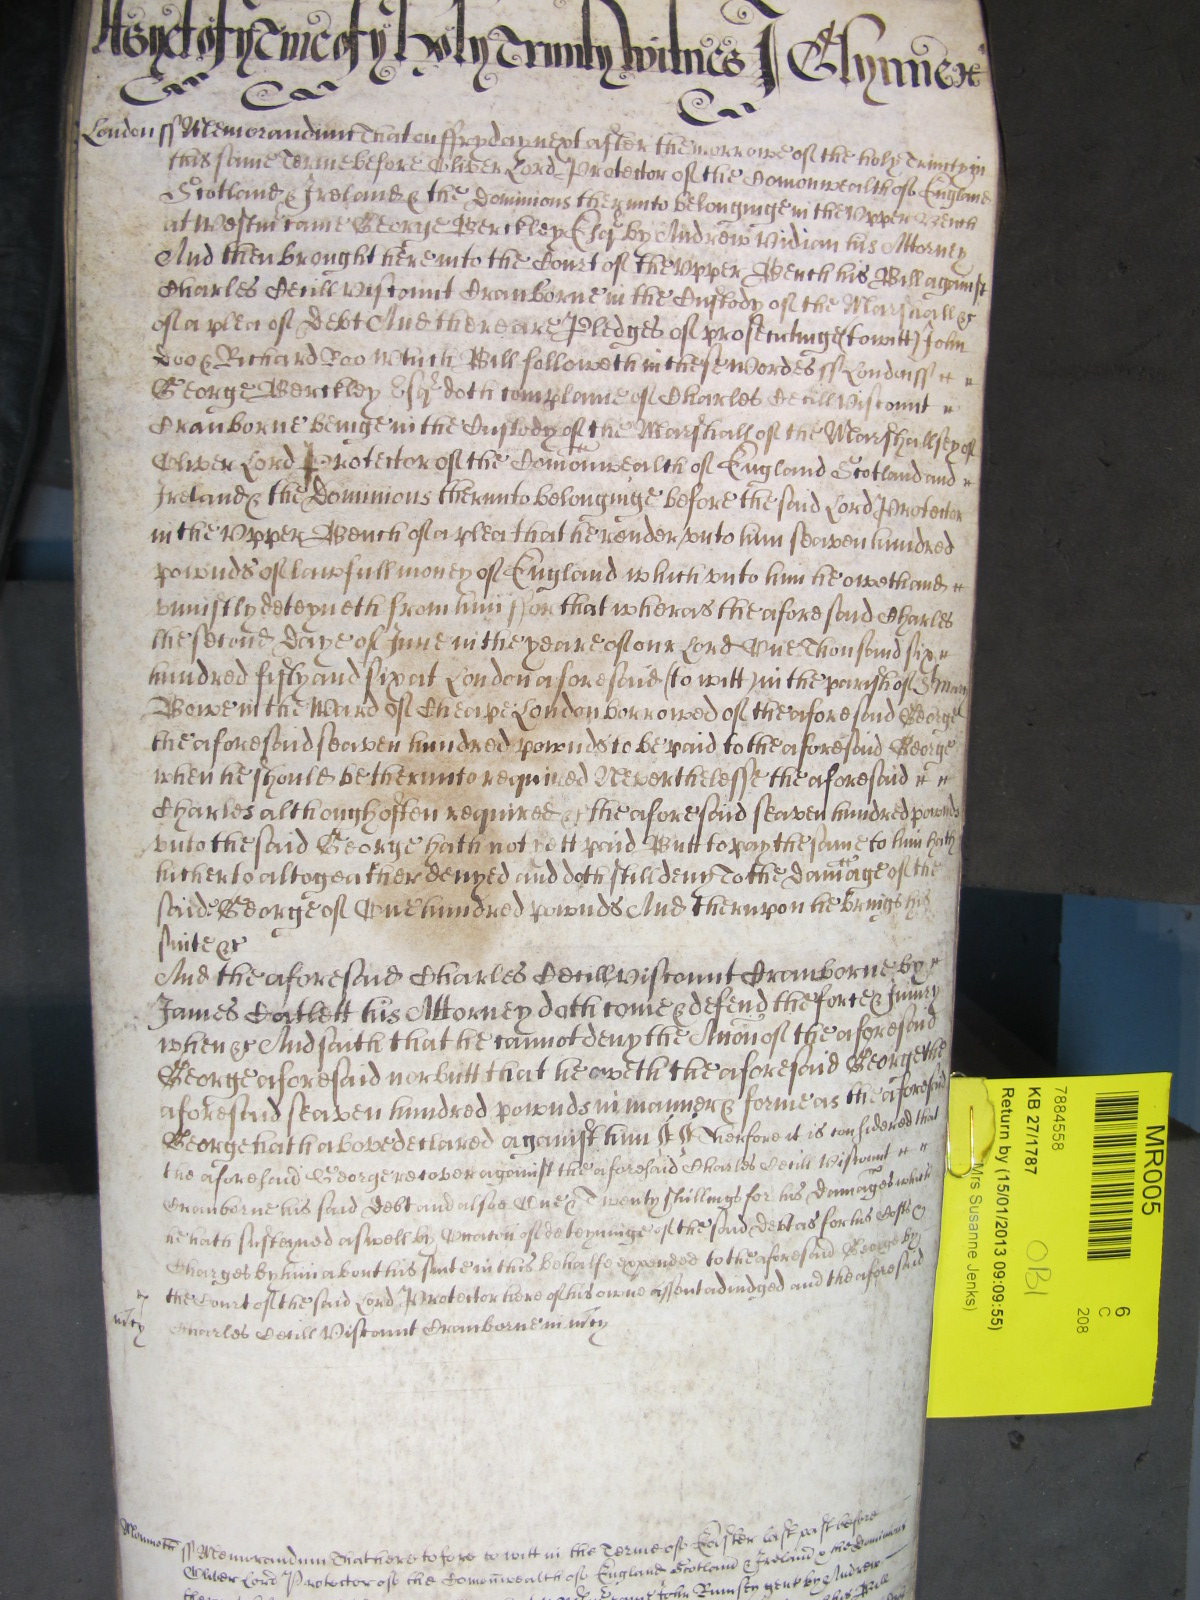 As yet of ye Terme of ye holy Trinity Witnes J Glynne &c
London ss Memorandum That on ffryday next after the morrowe of the holy Trinity in
this same Terme before Oliver Lord Protector of the Comonwealth of England
Scotland & Ireland & the Dominions therunto belonginge in the Upper Bench
at Westm came George Berckley Esqr by Andrew Vidian his Attorney
And then brought here into the Court of the Upper Bench his Bill against
Charles Cecill Viscount Cranborne in the Custody of the Marshall &c
of a plea of Debt And there are Pledges of prosecutinge (to witt) John
Doo & Richard Roo Which Bill followeth in these Wordes ss London ss
George Berckley Esqr doth complaine of Charles Cecill Viscount
Cranborne beinge in the Custody of the Marshall of the Marshallsey of
Oliver Lord Protector of the Comonwealth of England Scotland and
Ireland & the Dominions therunto belonginge before the said Lord Protector
in the Upper Bench of a plea that he render unto him seaven hundred
pownds of lawfull money of England which unto him he oweth and
uniustly deteyneth from him ffor that wheras the aforesaid Charles
the second Daye of June in the yeare of our Lord One Thousand six
hundred fifty and six at London aforesaid (to witt) in the parish of St Mary
Bowe in the Ward of Cheape London borrowed of the aforesaid George
the aforesaid seaven hundred pownds to be paid to the aforesaid George
when he should be therunto required Neverthelesse the aforesaid
Charles although often required &c the aforesaid seaven hundred pownds
unto the said George hath not yett paid Butt to pay the same to him hath
hitherto altogeather denyed and doth still deny To the Damage of the
said George of One hundred pownds And therupon he brings his
suite &c
And the aforesaid Charles Cecill Viscount Cranborne by
James Catlett his Attorney doth come & defend the force & Iniury
when &c And saith that he cannot deny the Accon of the aforesaid
George aforesaid nor butt that he oweth the aforesaid George the
aforesaid seaven hundred pownds in manner & forme as the aforesaid
George hath above declared against him Therfore it is considered that
the aforesaid George recover against the aforesaid Charles Cecill Viscount
Cranborne his said Debt and alsoe One & Twenty shillings for his Damages which
he hath susteyned aswell by Occacon of deteyninge of the said Debt as for his Costs &
Charges by him about his suite in this behalfe expended to the aforesaid George by
the Court of the said Lord Protector here of his owne assent adiudged and the aforesaid
Charles Cecill Viscount Cranborne in mcy
mcy
Monmoth ss Memorandum That heretofore to witt in the Terme of Easter last past before
Oliver Lord Protector of the Comonwealth of England Scotland & Ireland & the Dominions
came John Rumsey gent by Andrew
his Bill
MR005
6
C
208
7884558
KB 27/1787
OBI
Return by (15/01/2013 09:09:55)
Mrs Susanne Jenks)